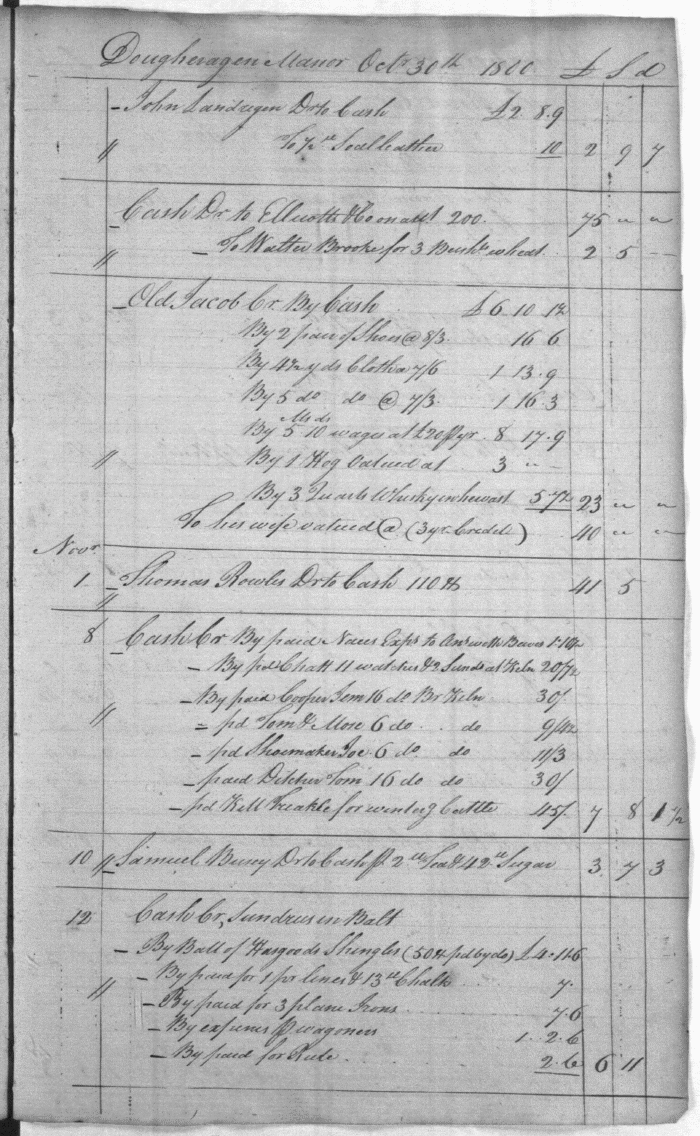 Dougheragen Manor Octr 30th 1800 £ S d
- John Landragen Dr to Cash £2 8.9
" To ½ lb Soalleather 10 2 9 7
- Cash Dr to Ellicotts & Co on acct 200. 75 " "
" - To Walter Brooke for 3 Bushs wheat 2 5 -
- Old Jacob Cr By Cash £6 10 1½
By 2 pair of Shoes @ 8/3. 16 6
By 4½ yds Cloth @ 7/6 1 13.9
By 5 do do @ 7/3. 1 16.3
By 5 Ms 10 ds wages at £20 pr yr. 8 17.9
" By 1 Hog valued at 3 " "
By 3 Quarts Whisky in hewast 5 7½ 23 " "
To his wife valued @ (3 yr Credit) 40 " "
Novr
1 - Thomas Rowles Dr to Cash 110 Ds 41 5
"
8 - Cash Cr By paid Naces Exps to Ans with Beeves 1-10½
- By pd Chatt 11 watches & 2 Sunds at Kiln 20/7½
- By paid Cooper Jem 16 do Br Kiln 30/
" = pd Tom & Mose 6 do . . do 9/4½
- pd Shoemaker Joe 6 do do 11/3
- paid Ditcher Tom 16 do do 30/
- pd Will Treakle for wintering Cattle 45/ 7 8 1½
10 " - Samuel Busey Dr to Cash pr 2 lb Tea & 42 lb Sugar 3 7 3
12 Cash Cr, Sundries in Balt
- By Ball of Hasgoods Shingles (50 Ds pd by do) £4.11.6
" - By paid for 1 pr lines & 13 lb Chalk 7.
- By paid for 3 plane Irons 7.6
- By expenses pr wagoners 1. 2.6
- By paid for Rule . 2.6 6 11